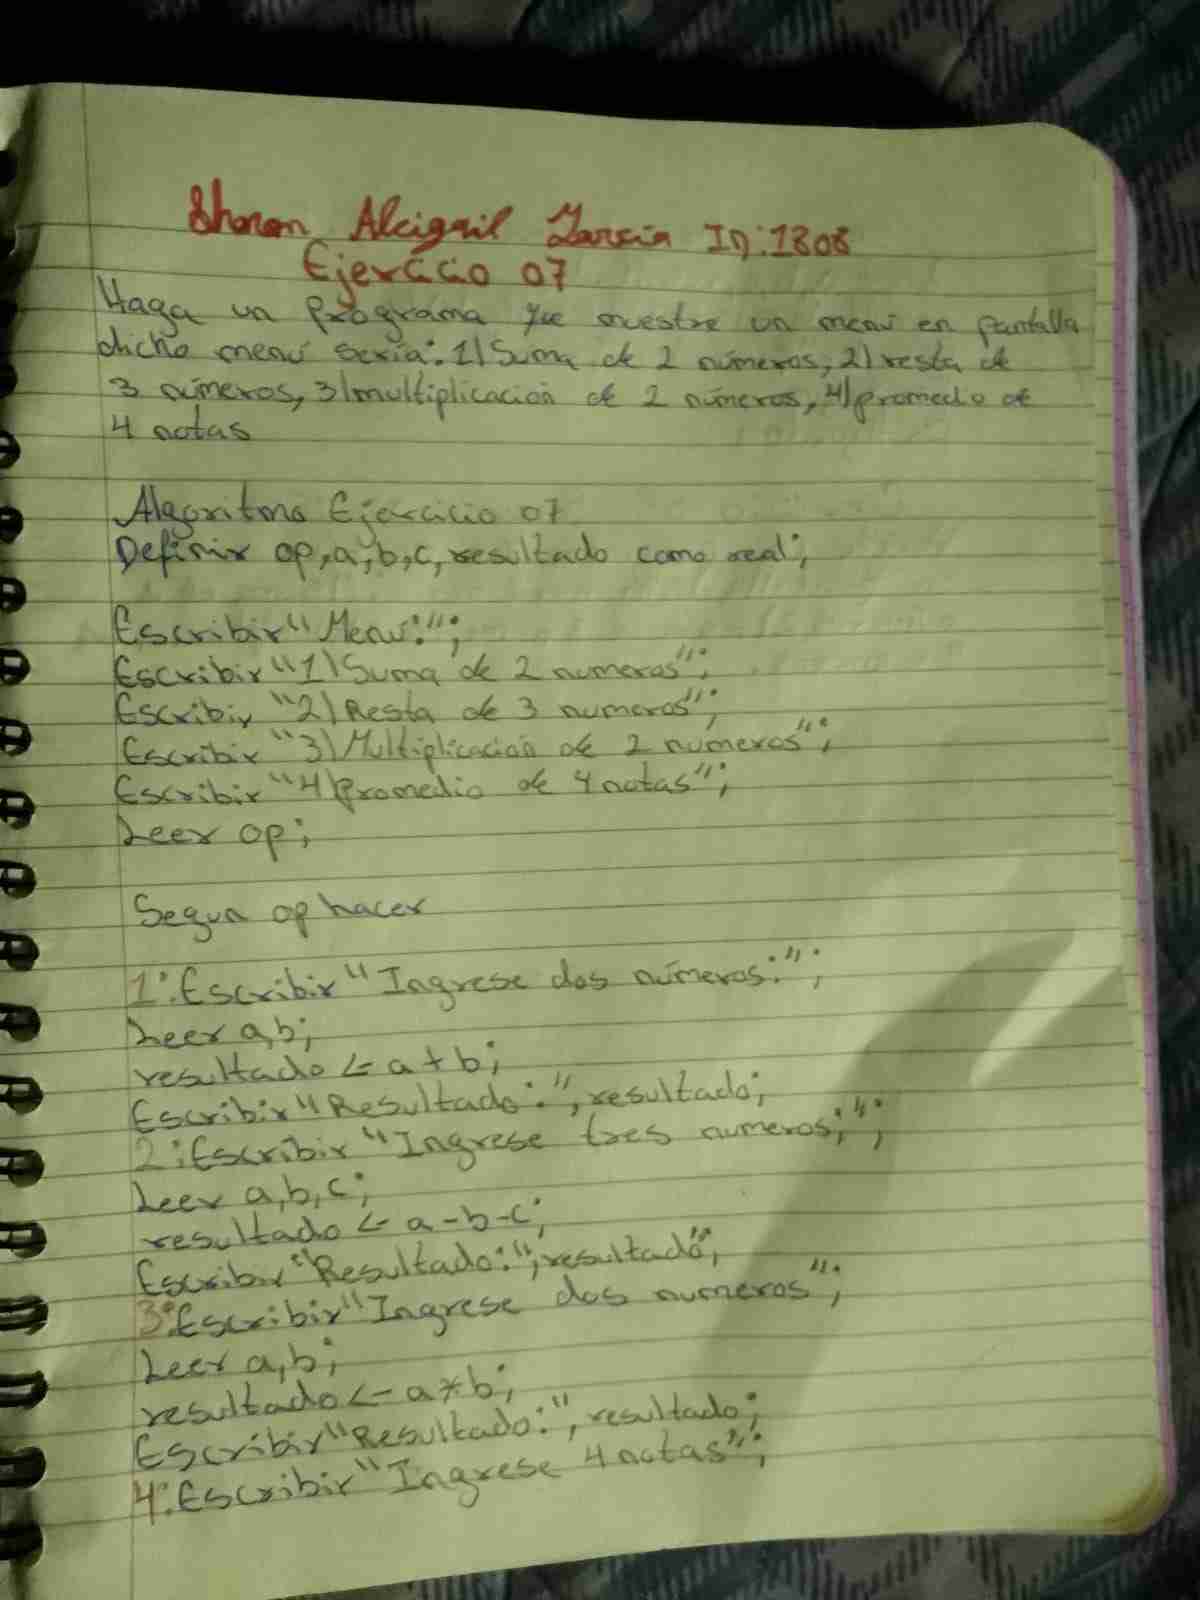 Sharon Alcigail Garcia ID:1808
Ejercicio 07
Haga un programa que muestre un menú en pantalla
dicho menú seria: 1) Suma de 2 números, 2) resta de
3 números, 3) multiplicación de 2 números, 4) promedio de
4 notas
Algoritmo Ejercicio 07
Definir op, a, b, c, resultado como real;
Escribir "Menú:";
Escribir "1) Suma de 2 numeros";
Escribir "2) Resta de 3 numeros";
Escribir "3) Multiplicación de 2 numeros";
Escribir "4) promedio de 4 notas";
Leer op;
Segun op hacer
1: Escribir "Ingrese dos números:";
Leer a, b;
resultado <- a + b;
Escribir "Resultado:", resultado;
2: Escribir "Ingrese tres numeros;";
Leer a, b, c;
resultado <- a - b - c;
Escribir "Resultado:", resultado";
3: Escribir "Ingrese dos numeros";
Leer a, b;
resultado <- a * b;
Escribir "Resultado:", resultado;
4: Escribir "Ingrese 4 notas";